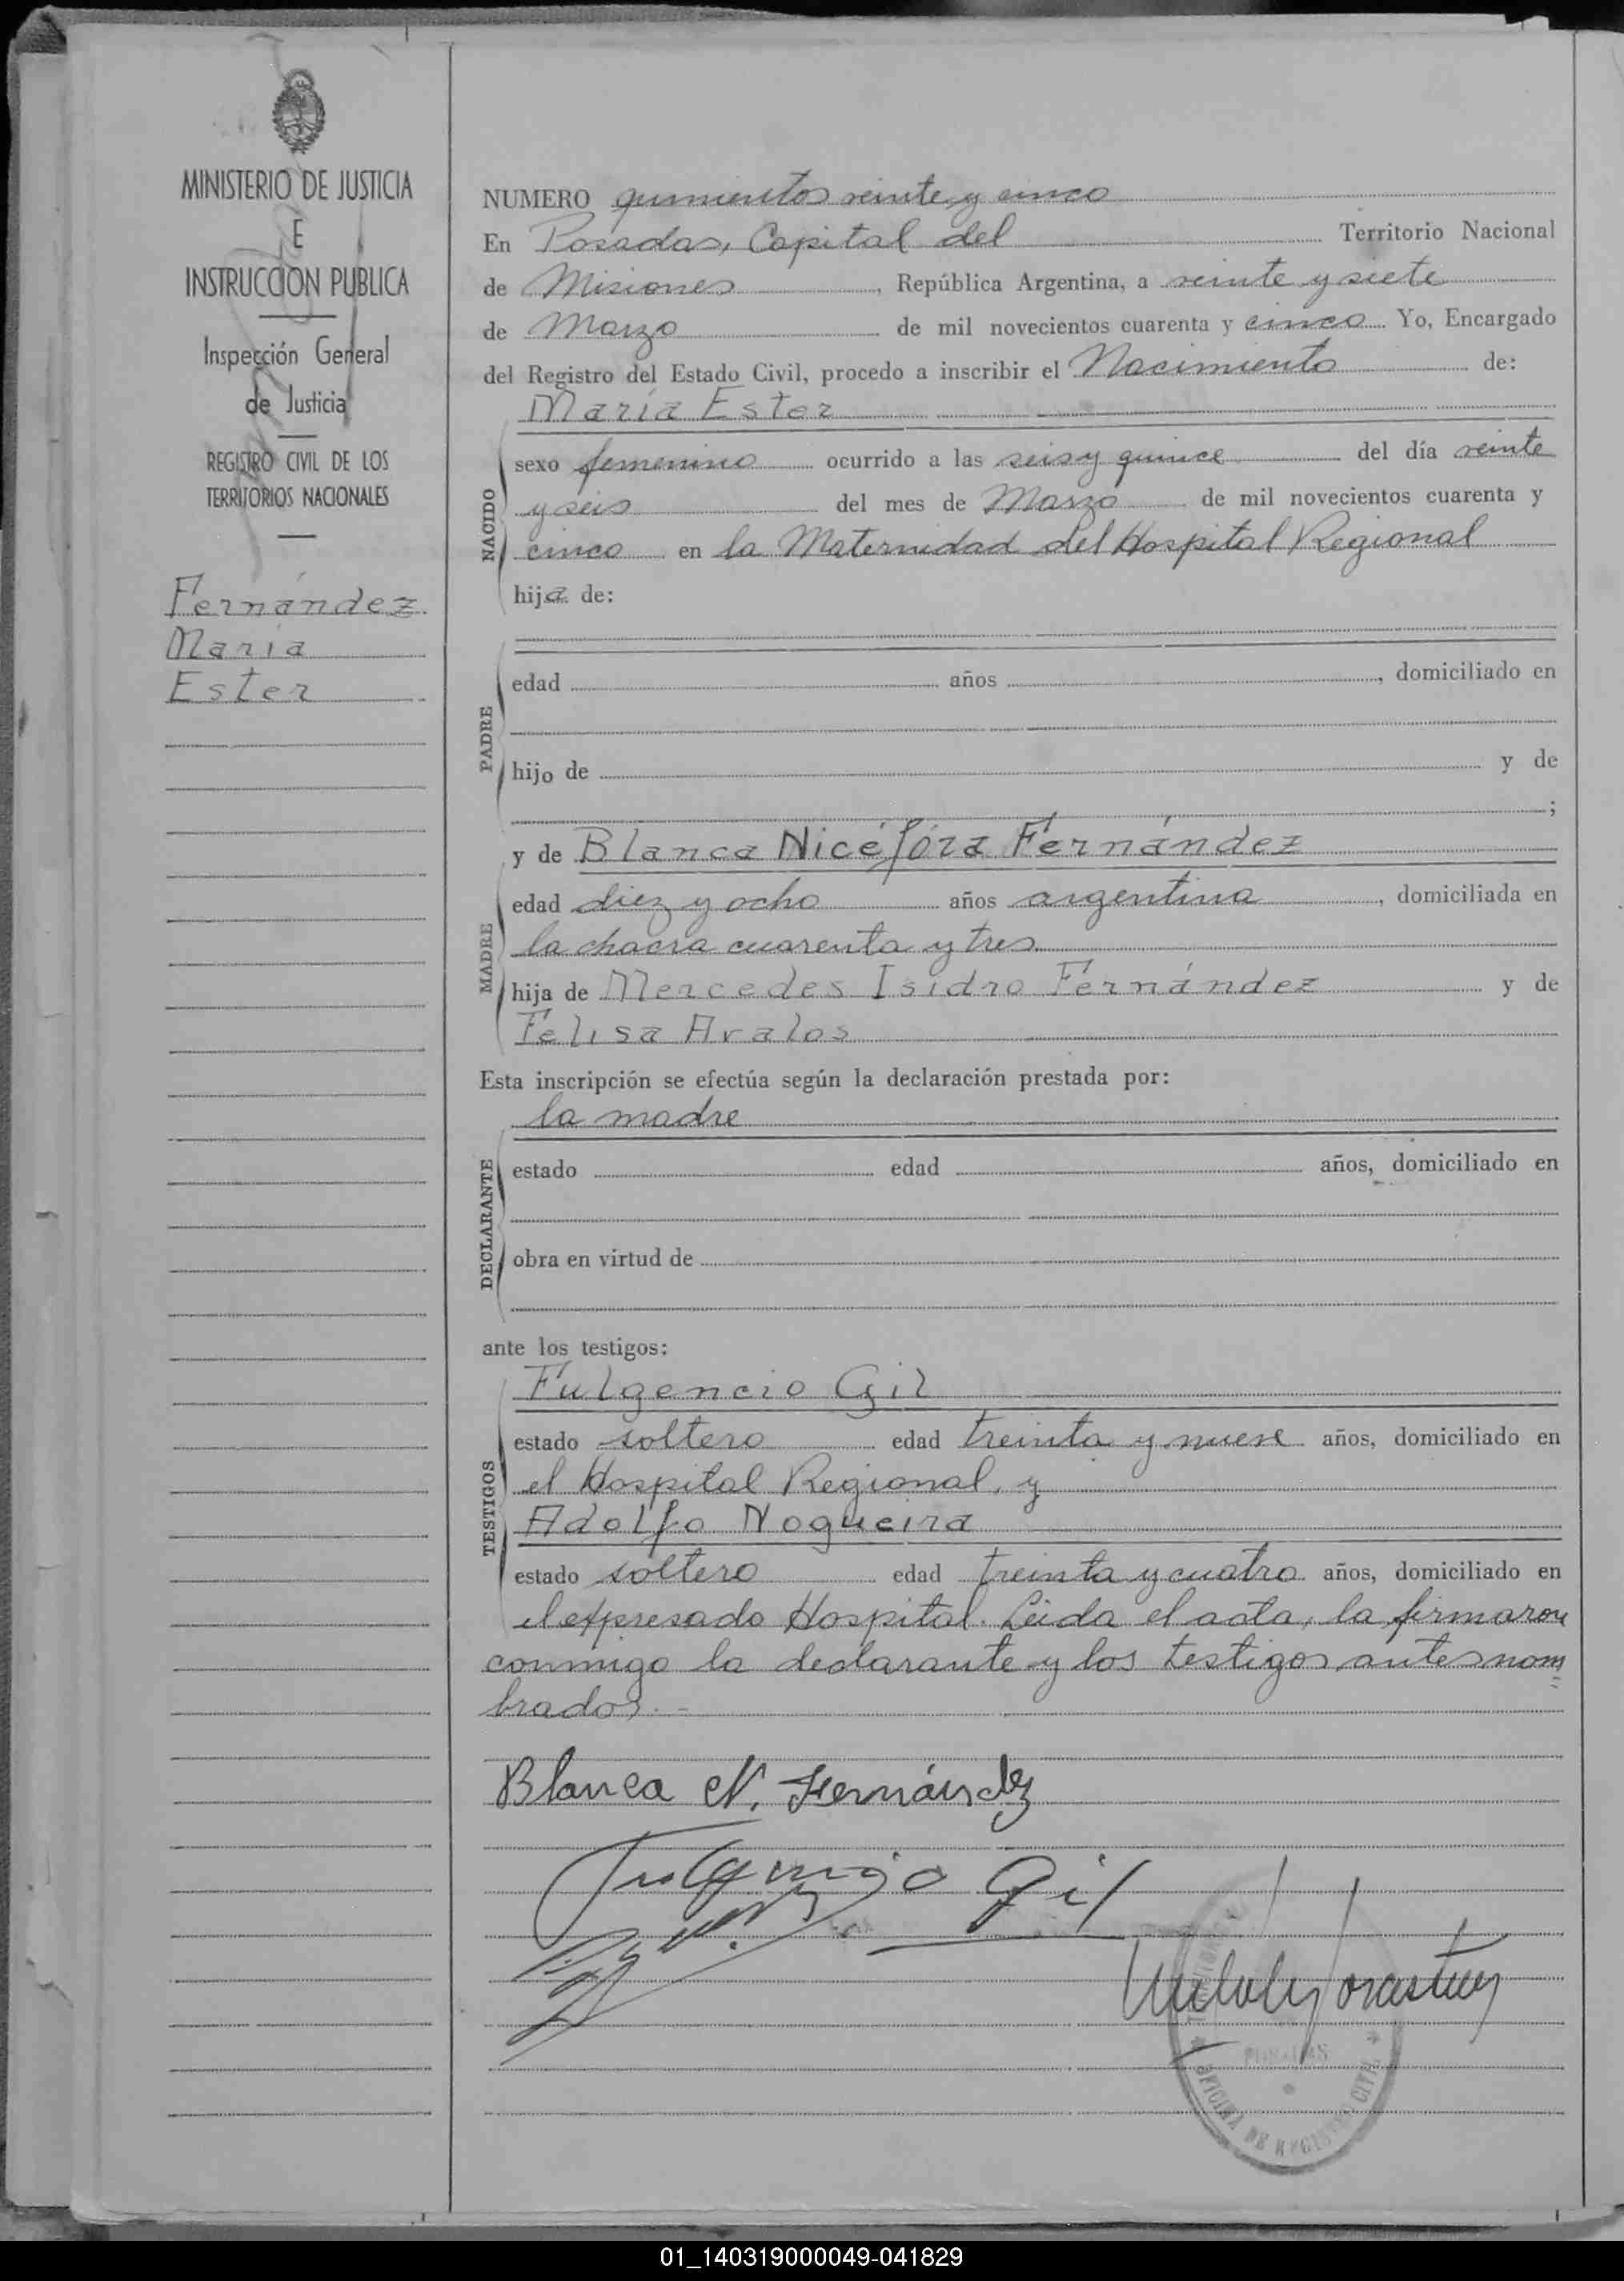 MINISTERIO DE JUSTICIA
E
INSTRUCCION PUBLICA
Inspección General
de Justicia
REGISTRO CIVIL DE LOS
TERRITORIOS NACIONALES
Fernández
María
Ester
NUMERO quinientos veinte y cinco
En Posadas, Capital del Territorio Nacional
de Misiones, República Argentina, a veinte y siete
de Marzo de mil novecientos cuarenta y cinco Yo, Encargado
del Registro del Estado Civil, procedo a inscribir el Nacimiento de:
María Ester
NACIDO
sexo femenino ocurrido a las seis y quince del día veinte
y seis del mes de Marzo de mil novecientos cuarenta y
cinco en la Maternidad del Hospital Regional
hija de:
PADRE
edad años , domiciliado en
hijo de y de
;
MADRE
y de Blanca Nicéfora Fernández
edad diez y ocho años argentina, domiciliada en
la chacra cuarenta y tres
hija de Mercedes Isidro Fernández y de
Felisa Avalos
Esta inscripción se efectúa según la declaración prestada por:
la madre
DECLARANTE
estado edad años, domiciliado en
obra en virtud de
ante los testigos:
TESTIGOS
Fulgencio Gil
estado soltero edad treinta y nueve años, domiciliado en
el Hospital Regional, y
Adolfo Nogueira
estado soltero edad treinta y cuatro años, domiciliado en
el expresado Hospital. Leida el acta, la firmaron
conmigo la declarante y los testigos antes nom=
brados.-
Blanca N. Fernández
Fulgencio Gil
POSADAS
OFICINA DE REGISTRO CIVIL
01_140319000049-041829